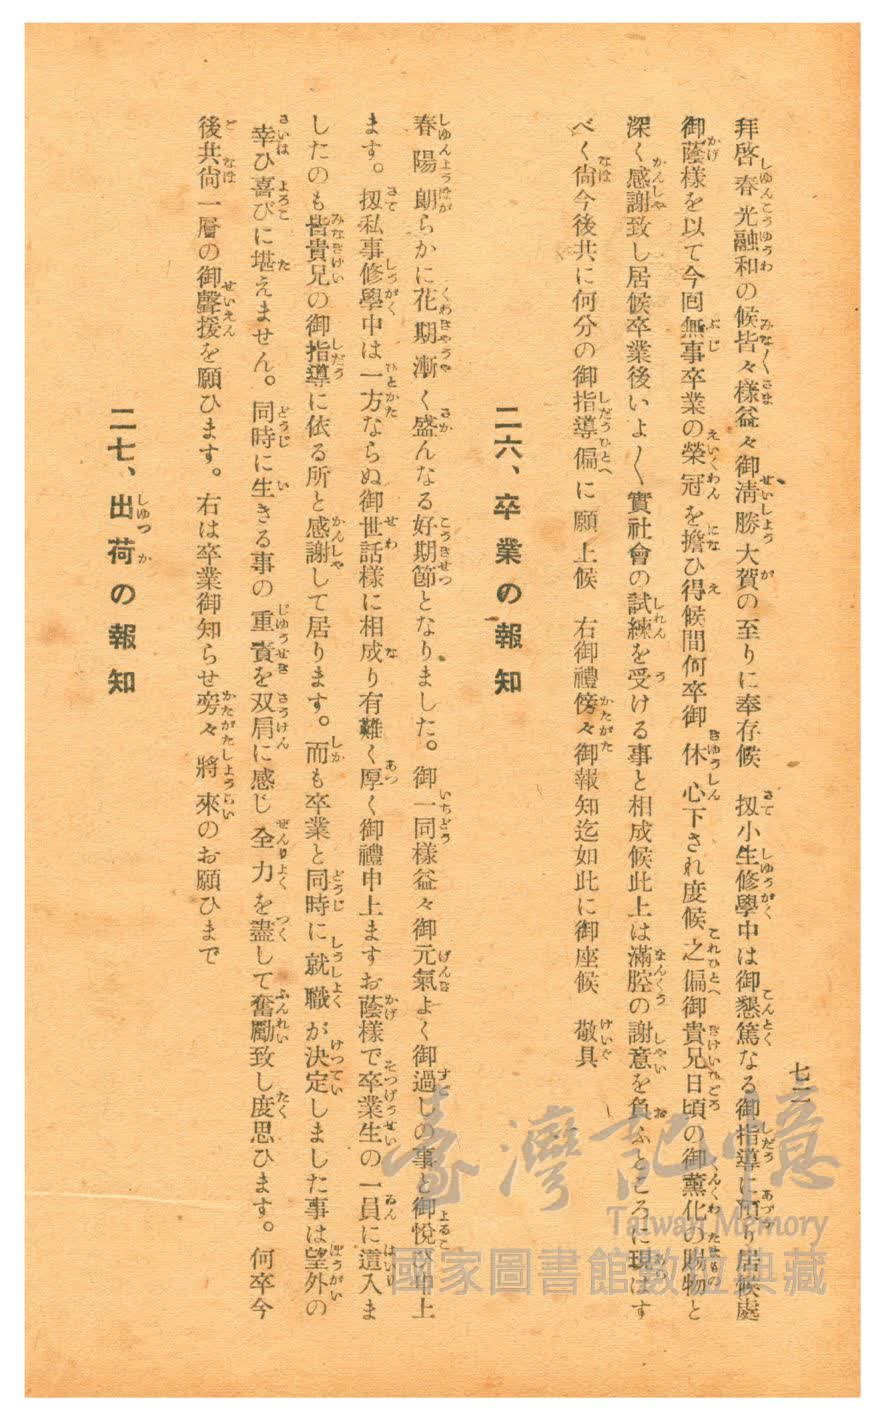 七二
拜啓春光融和の候皆々樣益々御淸勝大賀の至りに奉存候　扨小生修學中は御懇篤なる御指導に預り居候處
御蔭樣を以て今囘無事卒業の榮冠を擔ひ得候間何卒御休心下され度候之偏御貴兄日頃の御薰化の賜物と
深く感謝致し居候卒業後いよ〳〵實社會の試練を受ける事と相成候此上は滿腔の謝意を負ふところに現はす
べく尙今後共に何分の御指導偏に願上候　右御禮傍々御報知迄如此に御座候　敬具
二六、卒業の報知
春陽朗らかに花期漸く盛んなる好期節となりました。御一同樣益々御元氣よく御過しの事と御悅び申上
ます。扨私事修學中は一方ならぬ御世話樣に相成り有難く厚く御禮申上ますお蔭樣で卒業生の一員に這入ま
したのも皆貴兄の御指導に依る所と感謝して居ります。而も卒業と同時に就職が決定しました事は望外の
幸ひ喜びに堪えません。同時に生きる事の重責を双肩に感じ全力を盡して奮勵致し度思ひます。何卒今
後共尙一層の御聲援を願ひます。右は卒業御知らせ旁々將來のお願ひまで
二七、出荷の報知
臺灣記憶
Taiwan Memory
國家圖書館數位典藏